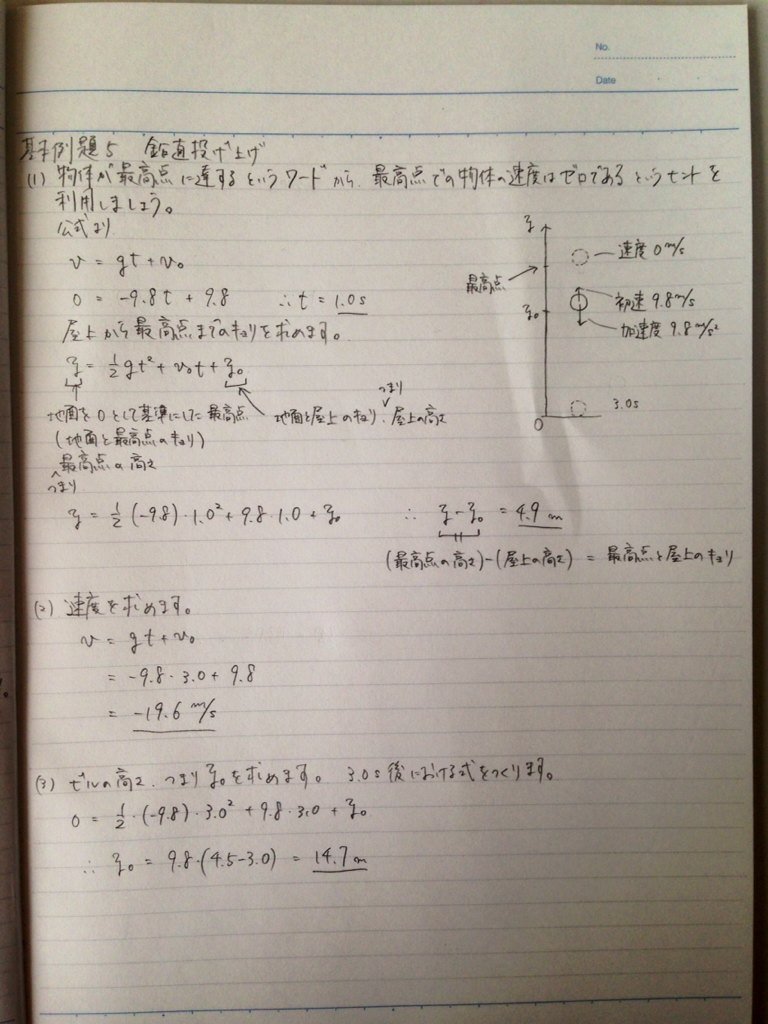 No.
Date
基本例題5 鉛直投げ上げ
(1) 物体が最高点に達するというワードから、最高点での物体の速度はゼロであるというヒントを
利用しましょう。
公式より
v = gt + v₀
0 = -9.8t + 9.8 ∴ t = 1.0 s
屋上から最高点までのキョリを求めます。
y = ½gt² + v₀t + y₀
地面を0として基準にした最高点
(地面と最高点のキョリ)
つまり
最高点の高さ
地面と屋上のキョリ、つまり屋上の高さ
y = ½(-9.8)・1.0² + 9.8・1.0 + y₀ ∴ y - y₀ = 4.9 m
(最高点の高さ)-(屋上の高さ) = 最高点と屋上のキョリ
y
最高点
y₀
0
速度 0 m/s
初速 9.8 m/s
加速度 9.8 m/s²
3.0s
(2) 速度を求めます。
v = gt + v₀
= -9.8・3.0 + 9.8
= -19.6 m/s
(3) ビルの高さ、つまりy₀を求めます。 3.0s後における式をつくります。
0 = ½・(-9.8)・3.0² + 9.8・3.0 + y₀
∴ y₀ = 9.8・(4.5-3.0) = 14.7 m